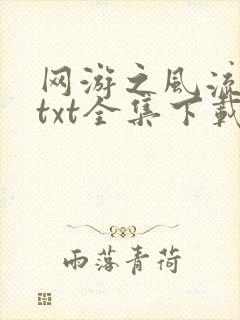 网游之风流
txt全集下载
雨落青荷